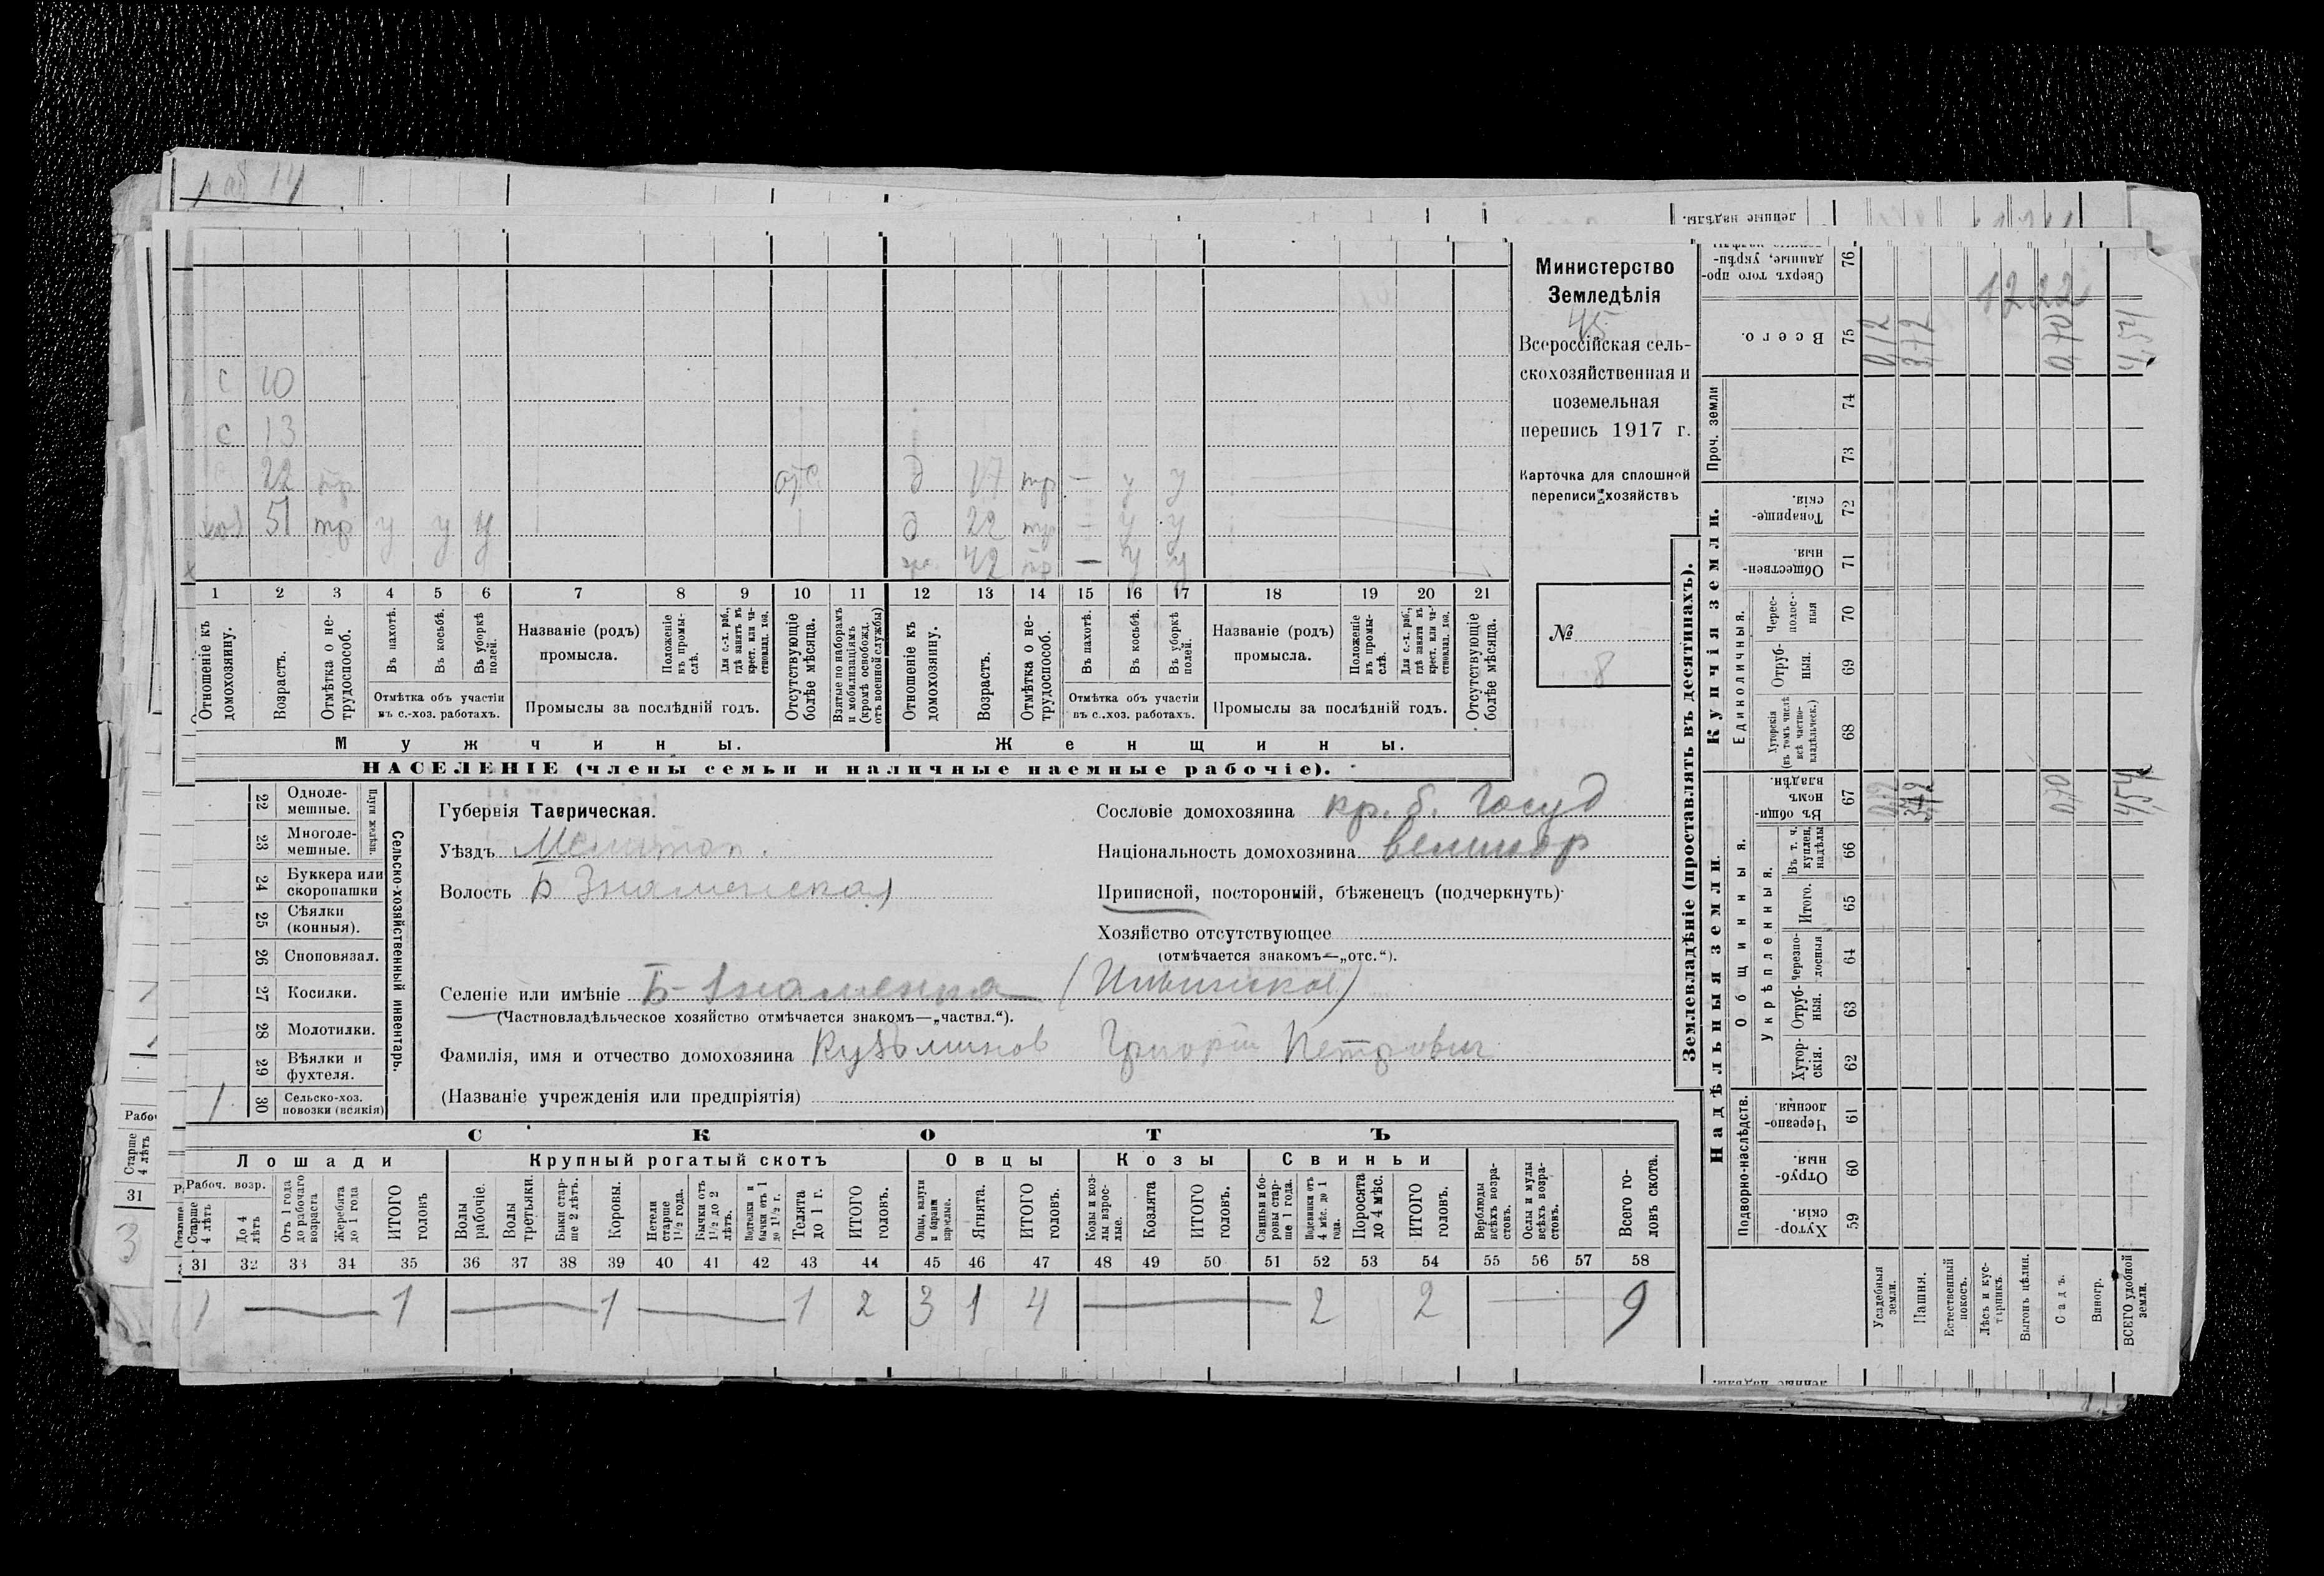 Министерство
Земледѣлія
45
Всероссійская сель-
скохозяйственная и
поземельная
перепись 1917 г.
Карточка для сплошной
переписи хозяйствъ
№
8
с 10
с 13
22 тр отс д 17 тр — у у
хоз 51 тр у у у д 22 тр — у у
42 тр — у у
1 2 3 4 5 6 7 8 9 10 11 12 13 14 15 16 17 18 19 20 21
Отношеніе къ домохозяину.
Возрастъ.
Отмѣтка о не-трудоспособ.
Въ пахотѣ.
Въ косьбѣ.
Въ уборкѣ полей.
Отмѣтка объ участіи въ с.-хоз. работахъ.
Названіе (родъ) промысла.
Положеніе въ промы-слѣ.
Для с.-х. раб., гдѣ занятъ въ крест. или ча-ствовлад. хоз.
Промыслы за послѣдній годъ.
Отсутствующіе болѣе мѣсяца.
Взятые по наборамъ и мобилизаціямъ (кромѣ освобожд. отъ военной службы)
Отношеніе къ домохозяину.
Возрастъ.
Отмѣтка о не-трудоспособ.
Въ пахотѣ.
Въ косьбѣ.
Въ уборкѣ полей.
Отмѣтка объ участіи въ с.-хоз. работахъ.
Названіе (родъ) промысла.
Положеніе въ промы-слѣ.
Для с.-х. раб., гдѣ занята въ крест. или ча-ствовлад. хоз.
Промыслы за послѣдній годъ.
Отсутствующіе болѣе мѣсяца.
Мужчины. Женщины.
НАСЕЛЕНІЕ (члены семьи и наличные наемные рабочіе).
22 Одноле-мешные.
23 Многоле-мешные.
Плуги желѣзн.
24 Буккера или скоропашки
25 Сѣялки (конныя).
26 Сноповязал.
27 Косилки.
28 Молотилки.
29 Вѣялки и фухтеля.
1 30 Сельско-хоз. повозки (всякія)
Сельско-хозяйственный инвентарь.
Губернія Таврическая.
Уѣздъ Мелитоп.
Волость Б Знаменская
Сословіе домохозяина кр. б. Госуд
Національность домохозяина великор
Приписной, посторонній, бѣженецъ (подчеркнуть)
Хозяйство отсутствующее
(отмѣчается знакомъ—„отс.“).
Селеніе или имѣніе Б-Знаменка
(Частновладѣльческое хозяйство отмѣчается знакомъ—„частвл.“).
Фамилія, имя и отчество домохозяина Кузьминов Григорій Петрович
(Названіе учрежденія или предпріятія)
СКОТЪ
Лошади Крупный рогатый скотъ Овцы Козы Свиньи
Рабоч. возр.
Старше 4 лѣтъ
До 4 лѣтъ
Отъ 1 года до рабочаго возраста
Жеребята до 1 года
ИТОГО головъ
Волы рабочіе.
Волы третьяки.
Быки стар-ше 2 лѣтъ.
Коровы.
Нетели старше 1½ года.
Бычки отъ 1½ до 2 лѣтъ.
Подтелки и бычки отъ 1 до 1½ г.
Телята до 1 г.
ИТОГО головъ.
Овцы, валухи и бараны взрослые.
Ягнята.
ИТОГО головъ.
Козы и коз-лы взрос-лые.
Козлята
ИТОГО головъ.
Свиньи и бо-ровы стар-ше 1 года.
Подсвинки отъ 4 мѣс. до 1 года.
Поросята до 4 мѣс.
ИТОГО головъ.
Верблюды всѣхъ возра-стовъ.
Ослы и мулы всѣхъ возра-стовъ.
Всего го-ловъ скота.
31 32 33 34 35 36 37 38 39 40 41 42 43 44 45 46 47 48 49 50 51 52 53 54 55 56 57 58
1 — 1 — 1 — 1 2 3 1 4 — 2 2 — 9
Землевладѣніе (проставлять въ десятинахъ).
Надѣльныя земли.
Купчія земли.
Проч. земли
Подворно-наслѣдств.
Общинныя.
Укрѣпленныя.
Единоличныя.
59 Хутор-скія.
60 Отруб-ныя.
61 Черезпо-лосныя.
62 Хутор-скія.
63 Отруб-ныя.
64 Черезпо-лосныя
65 Итого.
66 Въ т. ч. куплен. надѣлы
67 Въ общин-номъ владѣн.
68 Хуторскія (въ томъ числѣ всѣ частно-владѣльческ.)
69 Отруб-ныя.
70 Черес-полос-ныя
71 Обществен-ныя.
72 Товарище-скія.
73
74
75 Всего.
76 Сверхъ того про-данные, укрѣп-ленные надѣлы.
Усадебныя земли.
Пашня.
Естественный покосъ.
Лѣсъ и кус-тарникъ.
Выгонъ цѣлин.
Садъ.
Виногр.
ВСЕГО удобной земли.
0,12 3,72 0,70 4,54
0,12 3,72 0,70 4,54
1222
Рабоч
Старше 4 лѣтъ
31
3